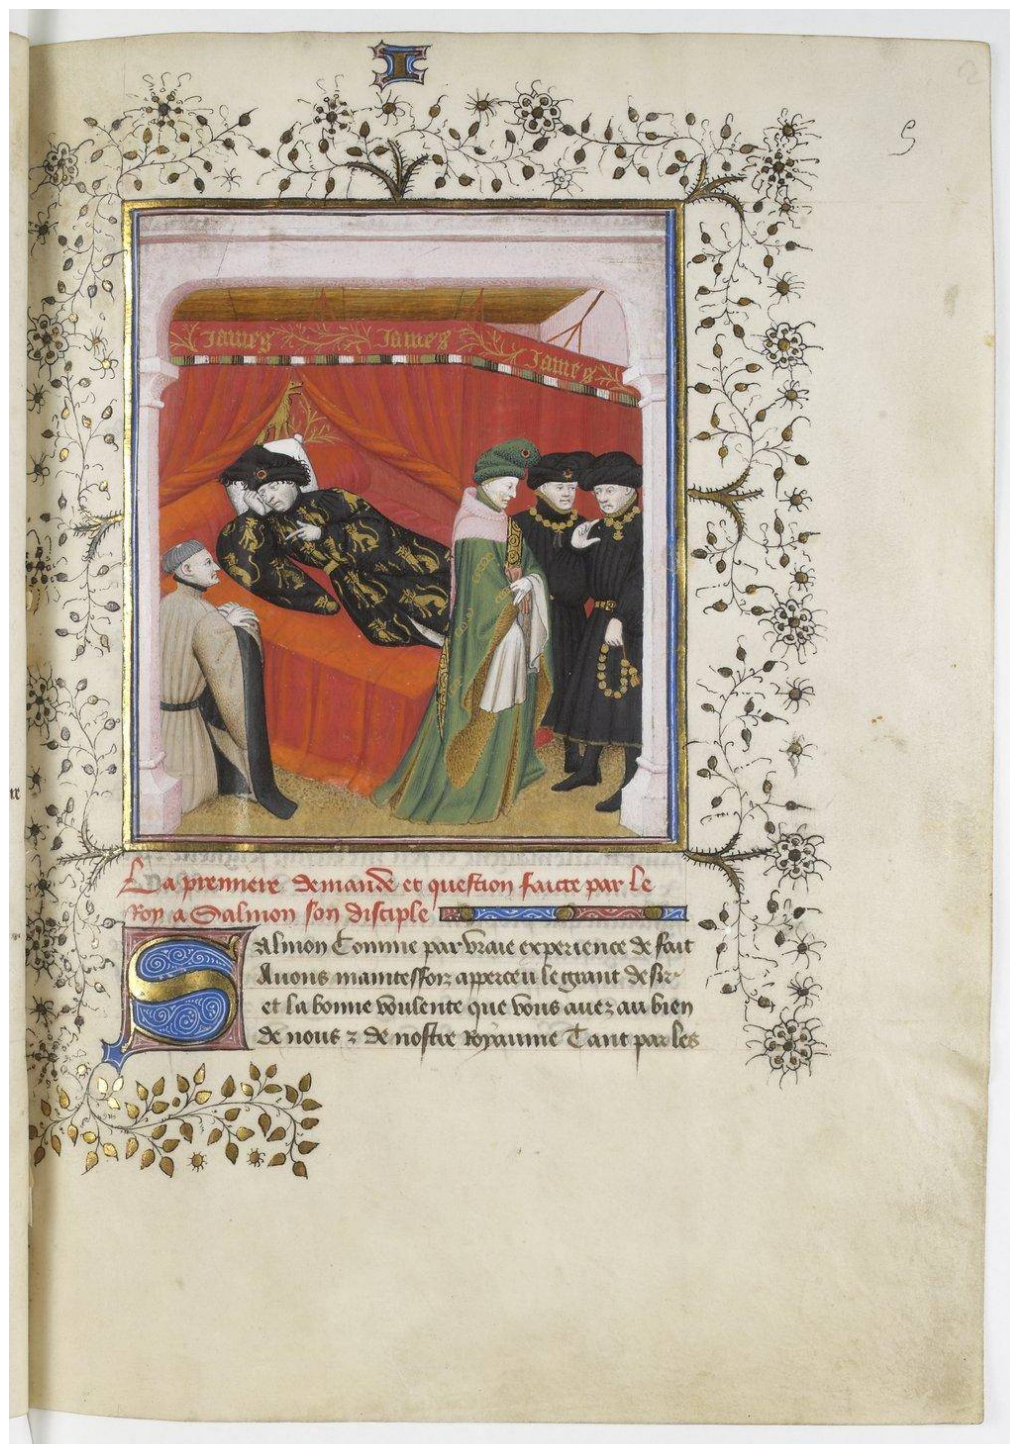 I
5
James James James
La premiere demande et question faicte par le
Roy a Salmon son disciple
Salmon Comme par vraie experience de fait
Auons maintesfoiz aperceu le grant desir
et la bonne voulente que vous auez au bien
de nous z de nostre Royaume Tant par les